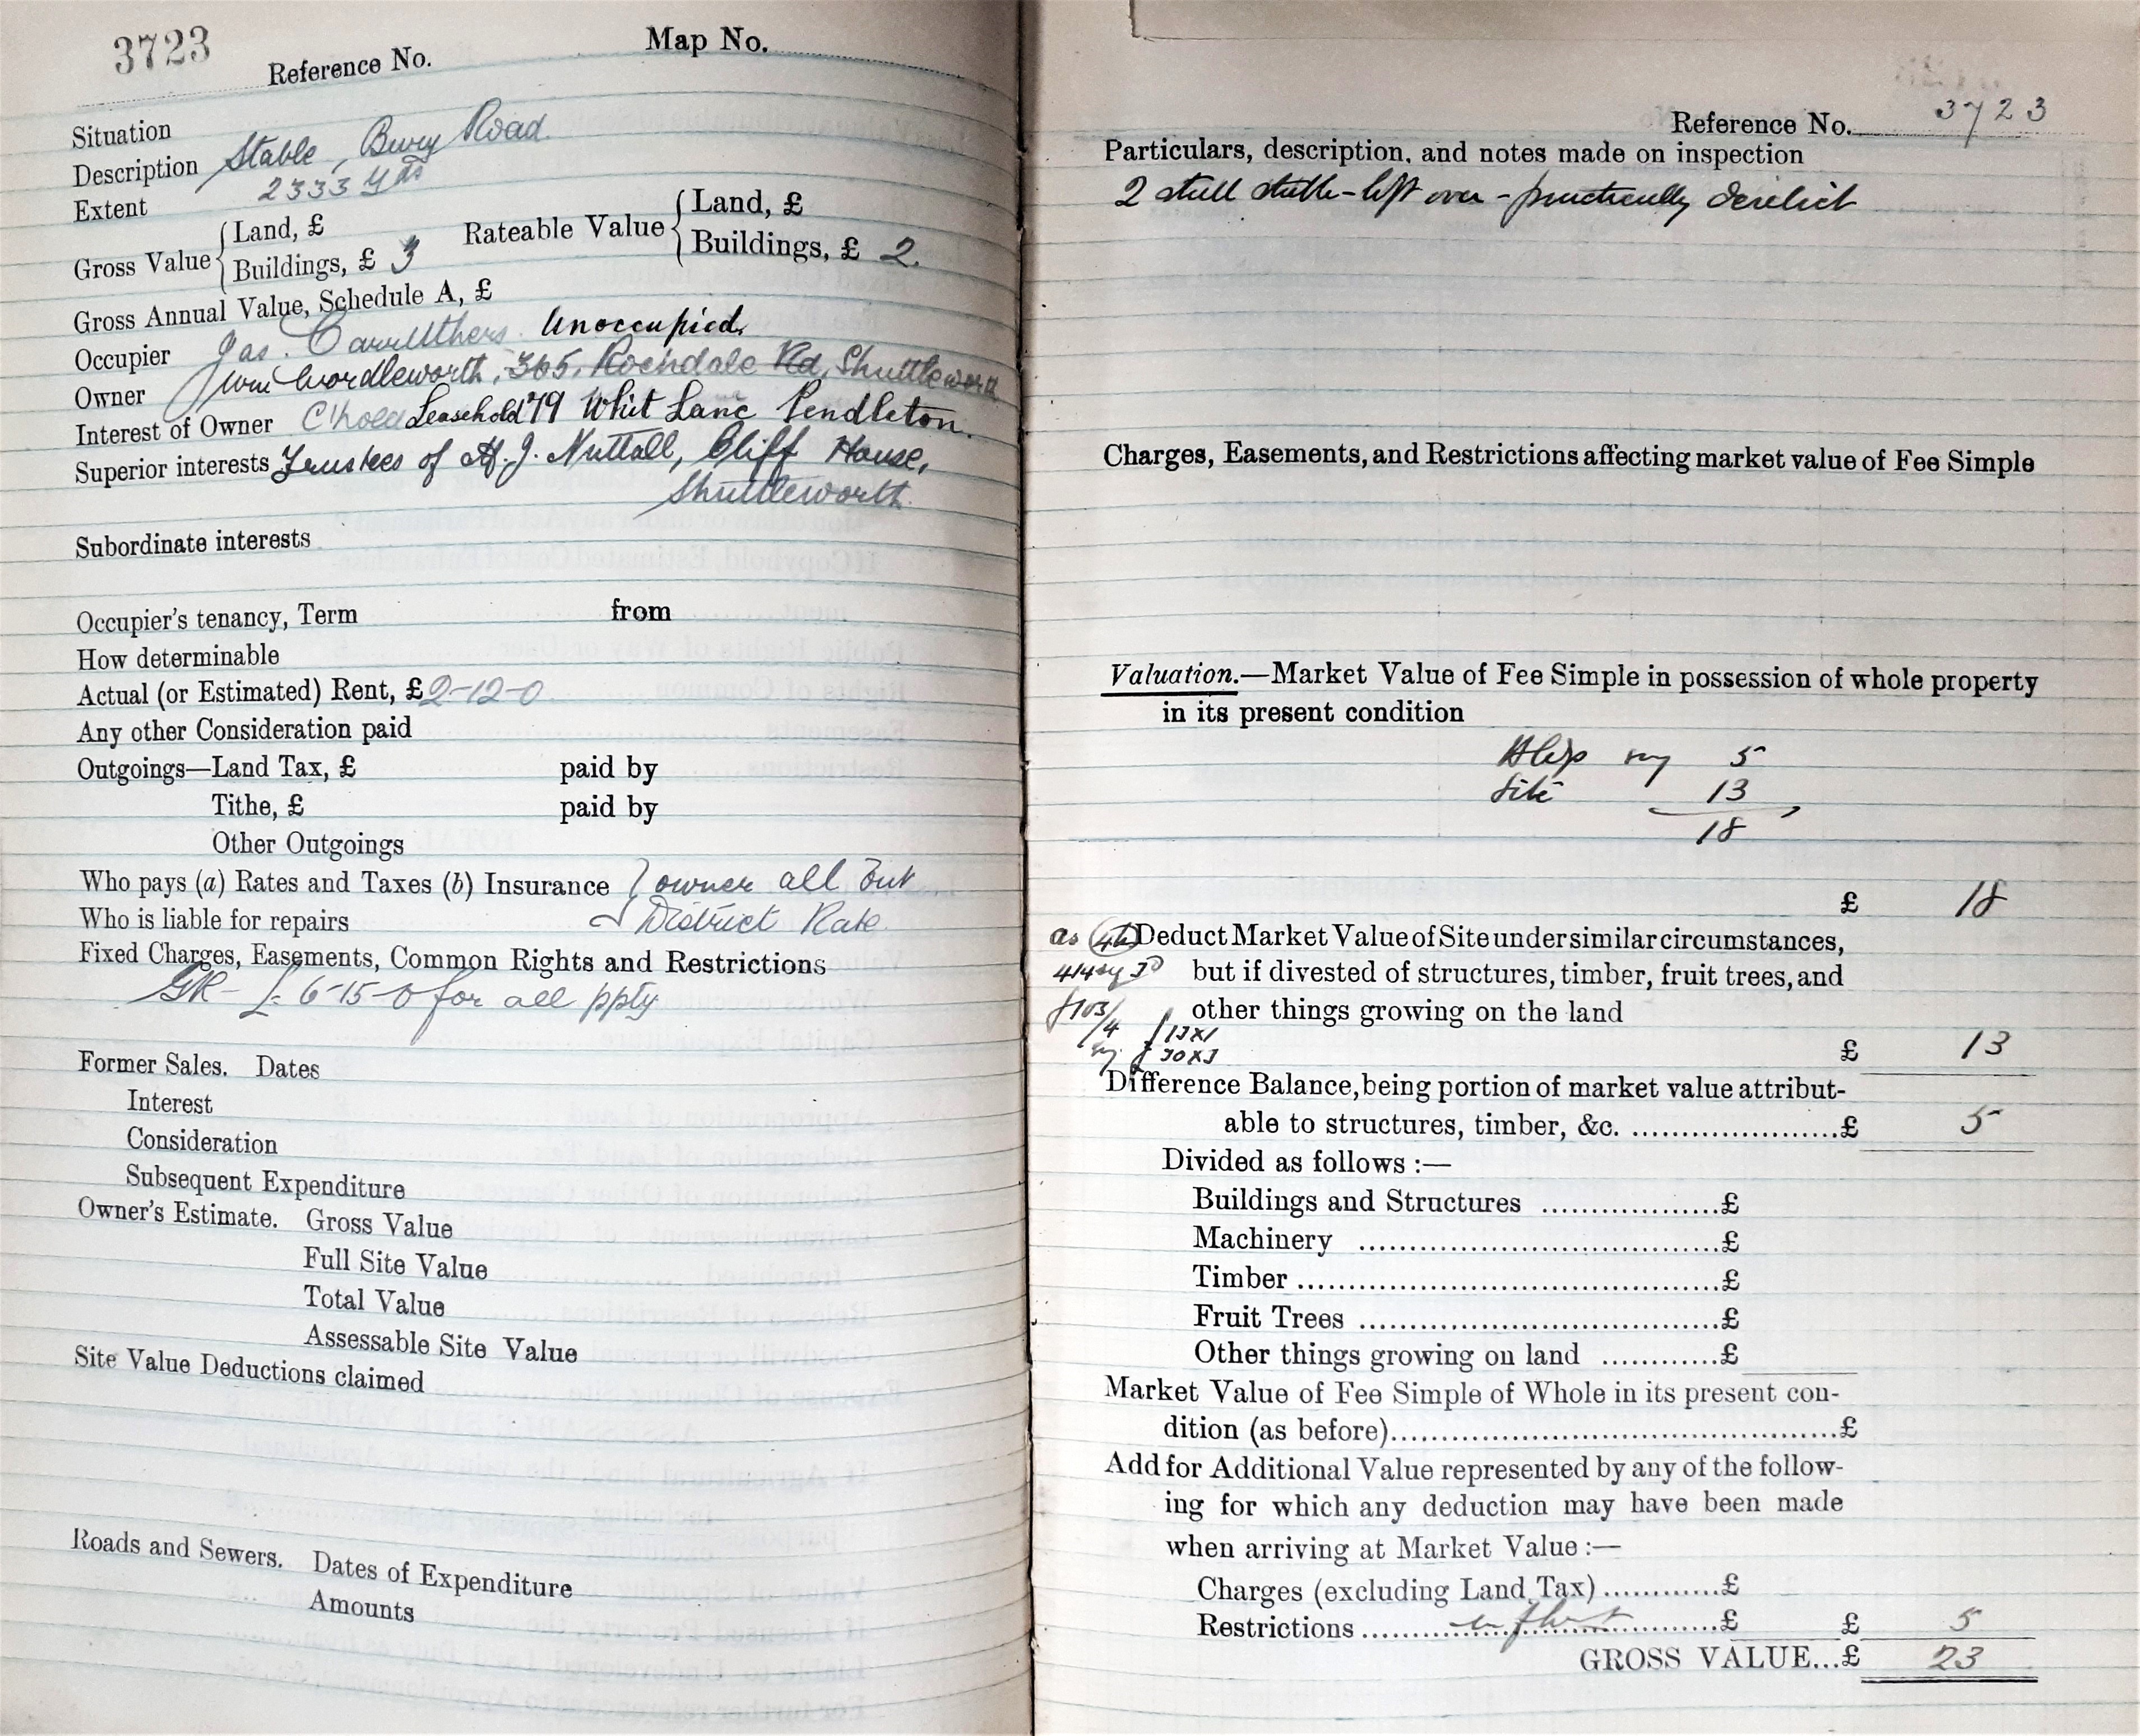 3723
Reference No. Map No.
Situation
Description Stable, Bury Road.
Extent 2333 yds
Gross Value { Land, £ Rateable Value { Land, £
Buildings, £ 3 Buildings, £ 2.
Gross Annual Value, Schedule A, £
Occupier Jas. Carruthers. Unoccupied.
Owner Wm Wordleworth, 365, Rochdale Rd, Shuttleworth
Interest of Owner C'hold Leasehold 79 Whit Lane Pendleton.
Superior interests Trustees of H. J. Nuttall, Cliff House,
Shuttleworth.
Subordinate interests
Occupier's tenancy, Term from
How determinable
Actual (or Estimated) Rent, £ 2-12-0
Any other Consideration paid
Outgoings—Land Tax, £ paid by
Tithe, £ paid by
Other Outgoings
Who pays (a) Rates and Taxes (b) Insurance } owner all but
Who is liable for repairs District Rate
Fixed Charges, Easements, Common Rights and Restrictions
GR - £6-15-0 for all ppty
Former Sales. Dates
Interest
Consideration
Subsequent Expenditure
Owner's Estimate. Gross Value
Full Site Value
Total Value
Assessable Site Value
Site Value Deductions claimed
Roads and Sewers. Dates of Expenditure
Amounts
Reference No. 3723
Particulars, description, and notes made on inspection
2 stall stable - loft over - practically derelict
Charges, Easements, and Restrictions affecting market value of Fee Simple
Valuation.—Market Value of Fee Simple in possession of whole property
in its present condition
say 5
Site 13
18
£ 18
as Deduct Market Value of Site under similar circumstances,
but if divested of structures, timber, fruit trees, and
other things growing on the land
£ 13
Difference Balance, being portion of market value attribut-
able to structures, timber, &c. ....................£ 5
Divided as follows :—
Buildings and Structures ..................£
Machinery ....................................£
Timber..........................................£
Fruit Trees ....................................£
Other things growing on land ............£
Market Value of Fee Simple of Whole in its present con-
dition (as before).............................................£
Add for Additional Value represented by any of the follow-
ing for which any deduction may have been made
when arriving at Market Value :—
Charges (excluding Land Tax)............£
Restrictions ....................................£ £ 5
GROSS VALUE...£ 23